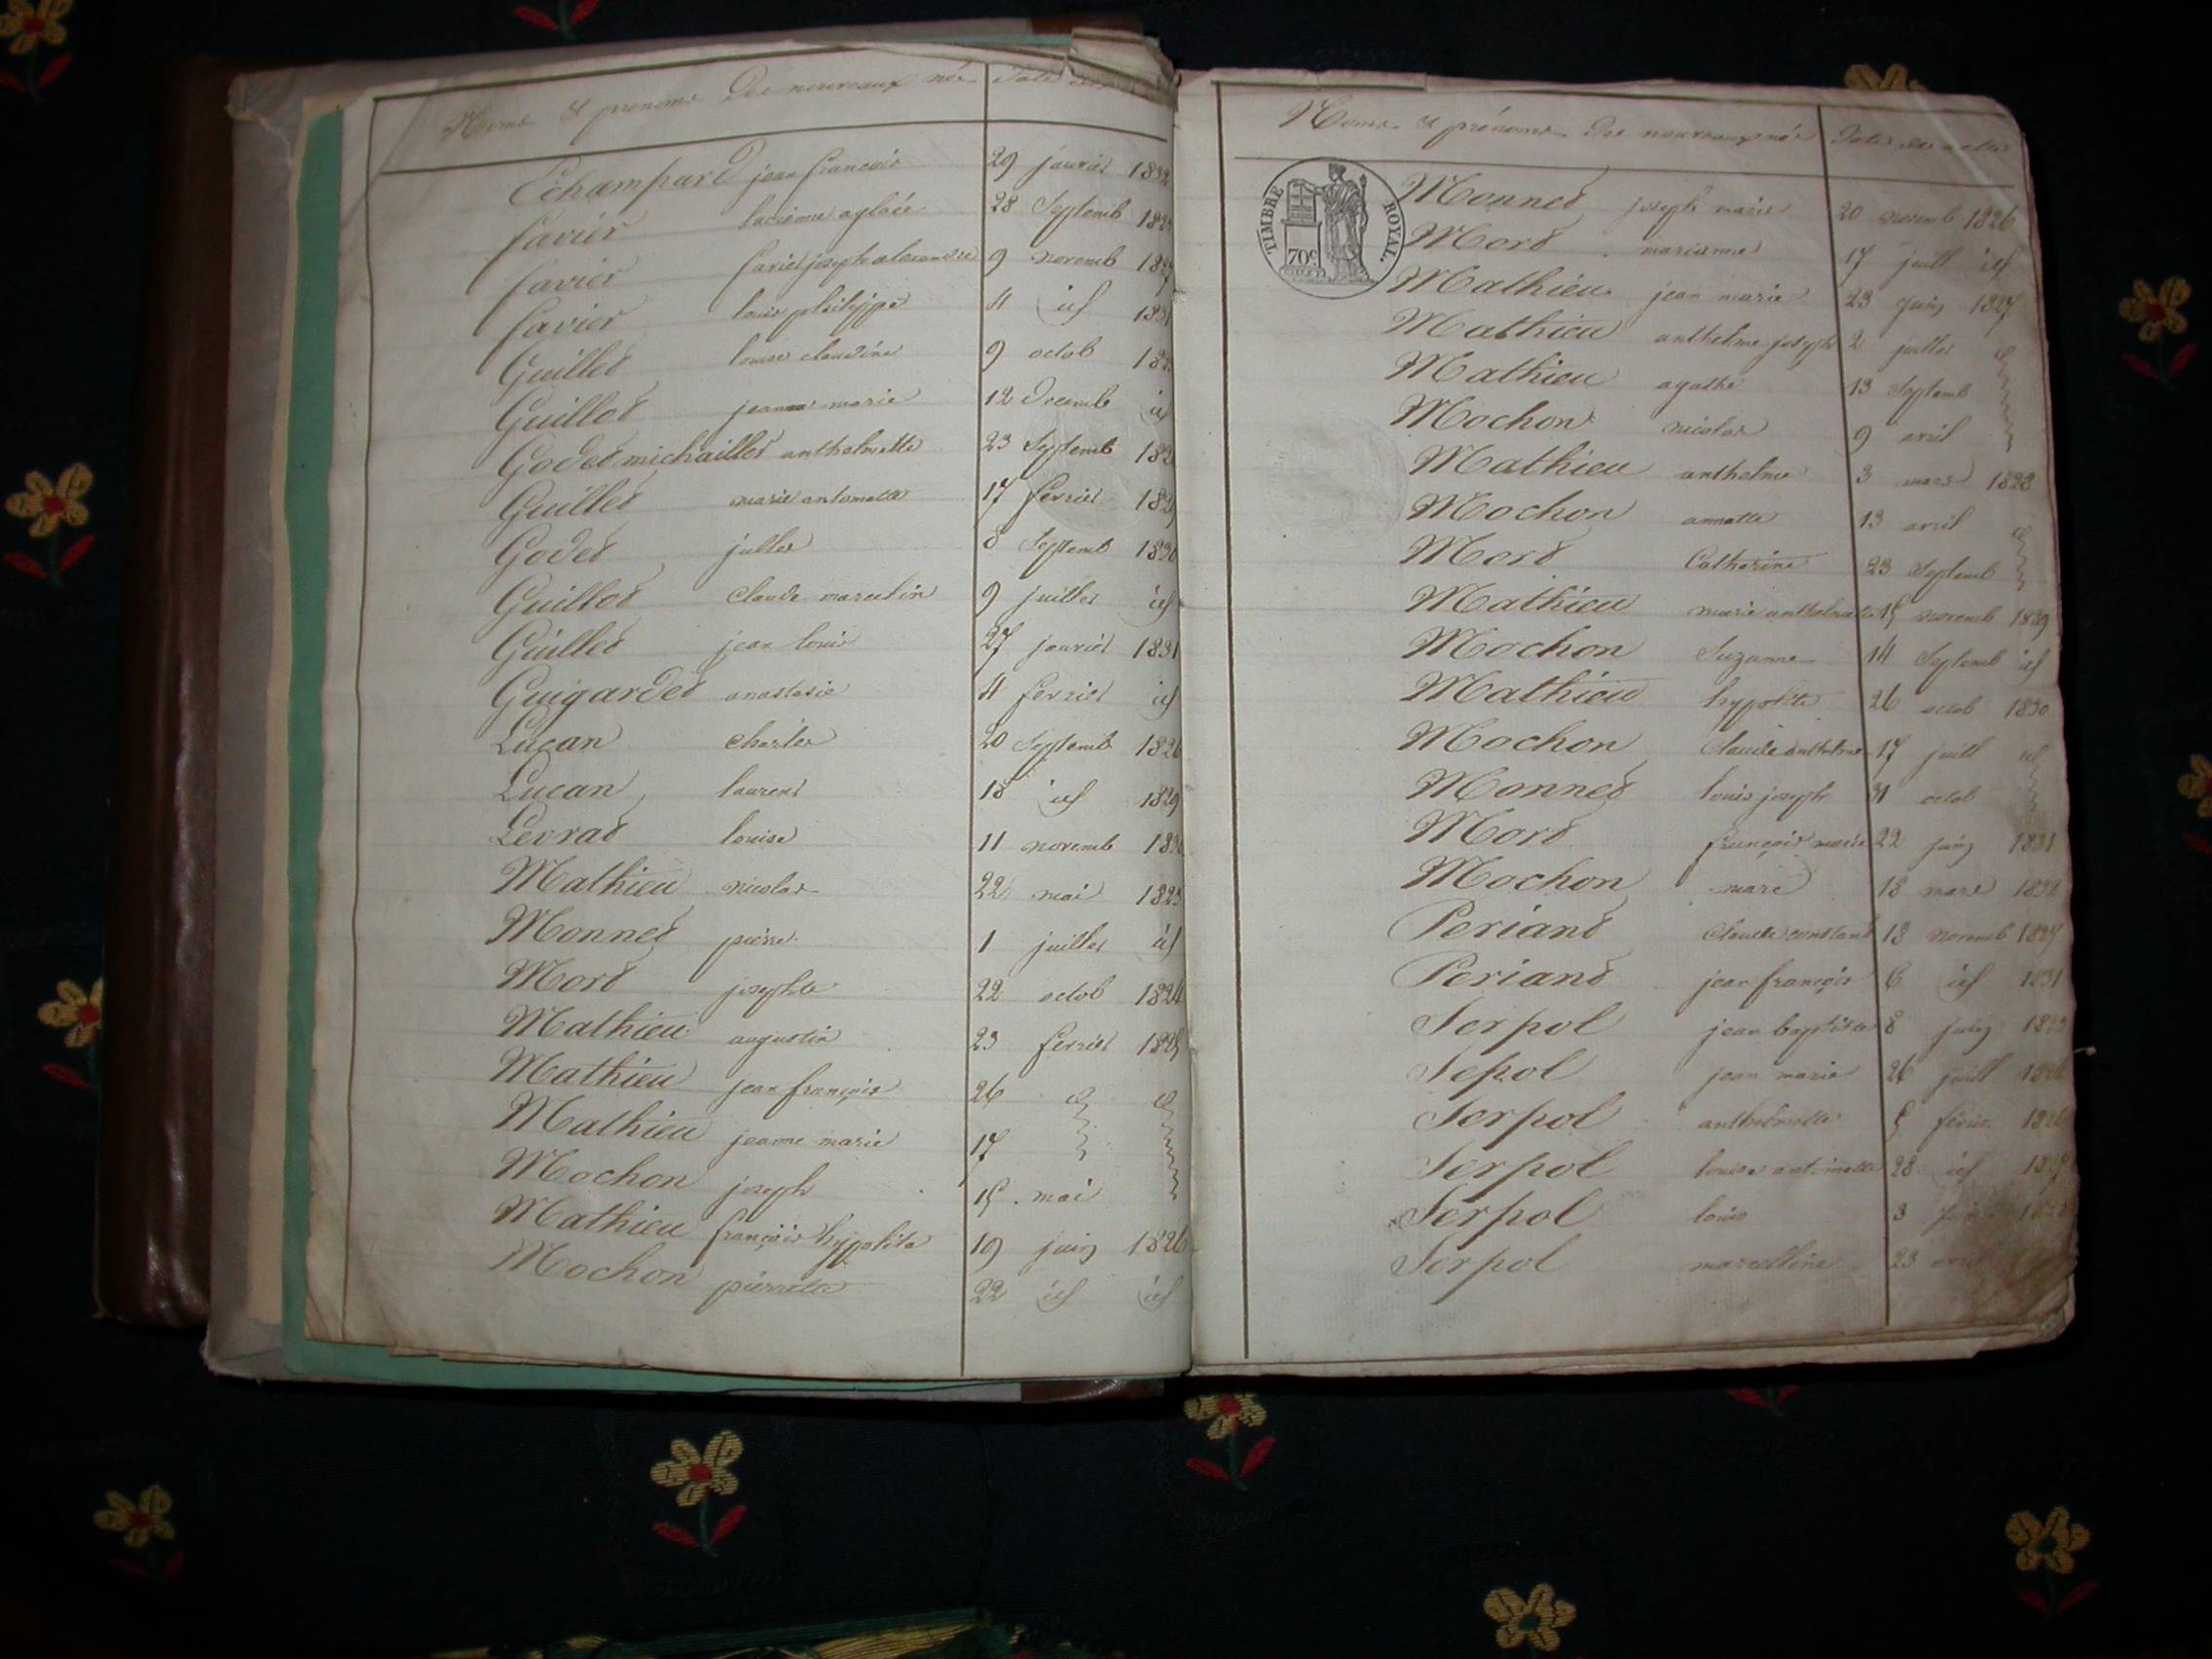 Noms et prenoms des nouveaux nés Date des
Echampard jean francois 29 janvier 1832
favier aglaée 28 Septemb
favier favier joseph alexandre 9 novemb
favier louis philippe 4 id 1831
Guillet louise claudine 9 octob
Guillot jeanne marie 12 decemb id
Godet michaillet anthelmette 23 Septemb
Guillet marie antoinette 17 fevrier
Godet julles 8 Septemb 1830
Guillot Claude marcelin 9 juillet id
Guillet jean louis 27 janvier 1831
Guigardet anastasie 4 fevrier id
Lucan charles 20 Septemb 1826
Lucan laurent 18 id 1829
Levrat louise 11 novemb
Mathieu nicolas 22 mai 1823
Monnet pierre 1 juillet id
Mort josephte 22 octob 1824
Mathieu augustin 23 fevrier 1825
Mathieu jean françois 26
Mathieu jeanne marie 17
Mochon joseph 15 mai
Mathieu françois hypolite 19 juin 1826
Mochon pierrette 22 id id
Noms et prénoms des nouveaux nés Date des actes
TIMBRE ROYAL.
70c
Monnet joseph marie 20 novemb 1826
Mort marianne 17 juill id
Mathieu jean marie 23 juin 1827
Mathieu anthelme joseph 2 juillet
Mathieu agathe 13 Septemb
Mochon nicolas 9 avril
Mathieu anthelme 3 mars 1828
Mochon annette 13 avril
Mort Catherine 23 Septemb
Mathieu marie anthelmette 15 novemb 1829
Mochon Suzanne 14 Septemb id
Mathieu hypolite 26 octob 1830
Mochon Claude anthelme 17 juill id
Monnet louis joseph 31 octob
Mort françois marie 22 juin 1831
Mochon marie 18 mars
Periand Claude constant 13 novemb 1827
Periand jean françois 6 id 1831
Serpol jean baptiste 8 juin 1823
Sepol jean marie 26 juill
Serpol anthelmette 5 fevrier
Serpol louise antoinette 28 id
Serpol louis 3
Serpol marcelline 23 avril